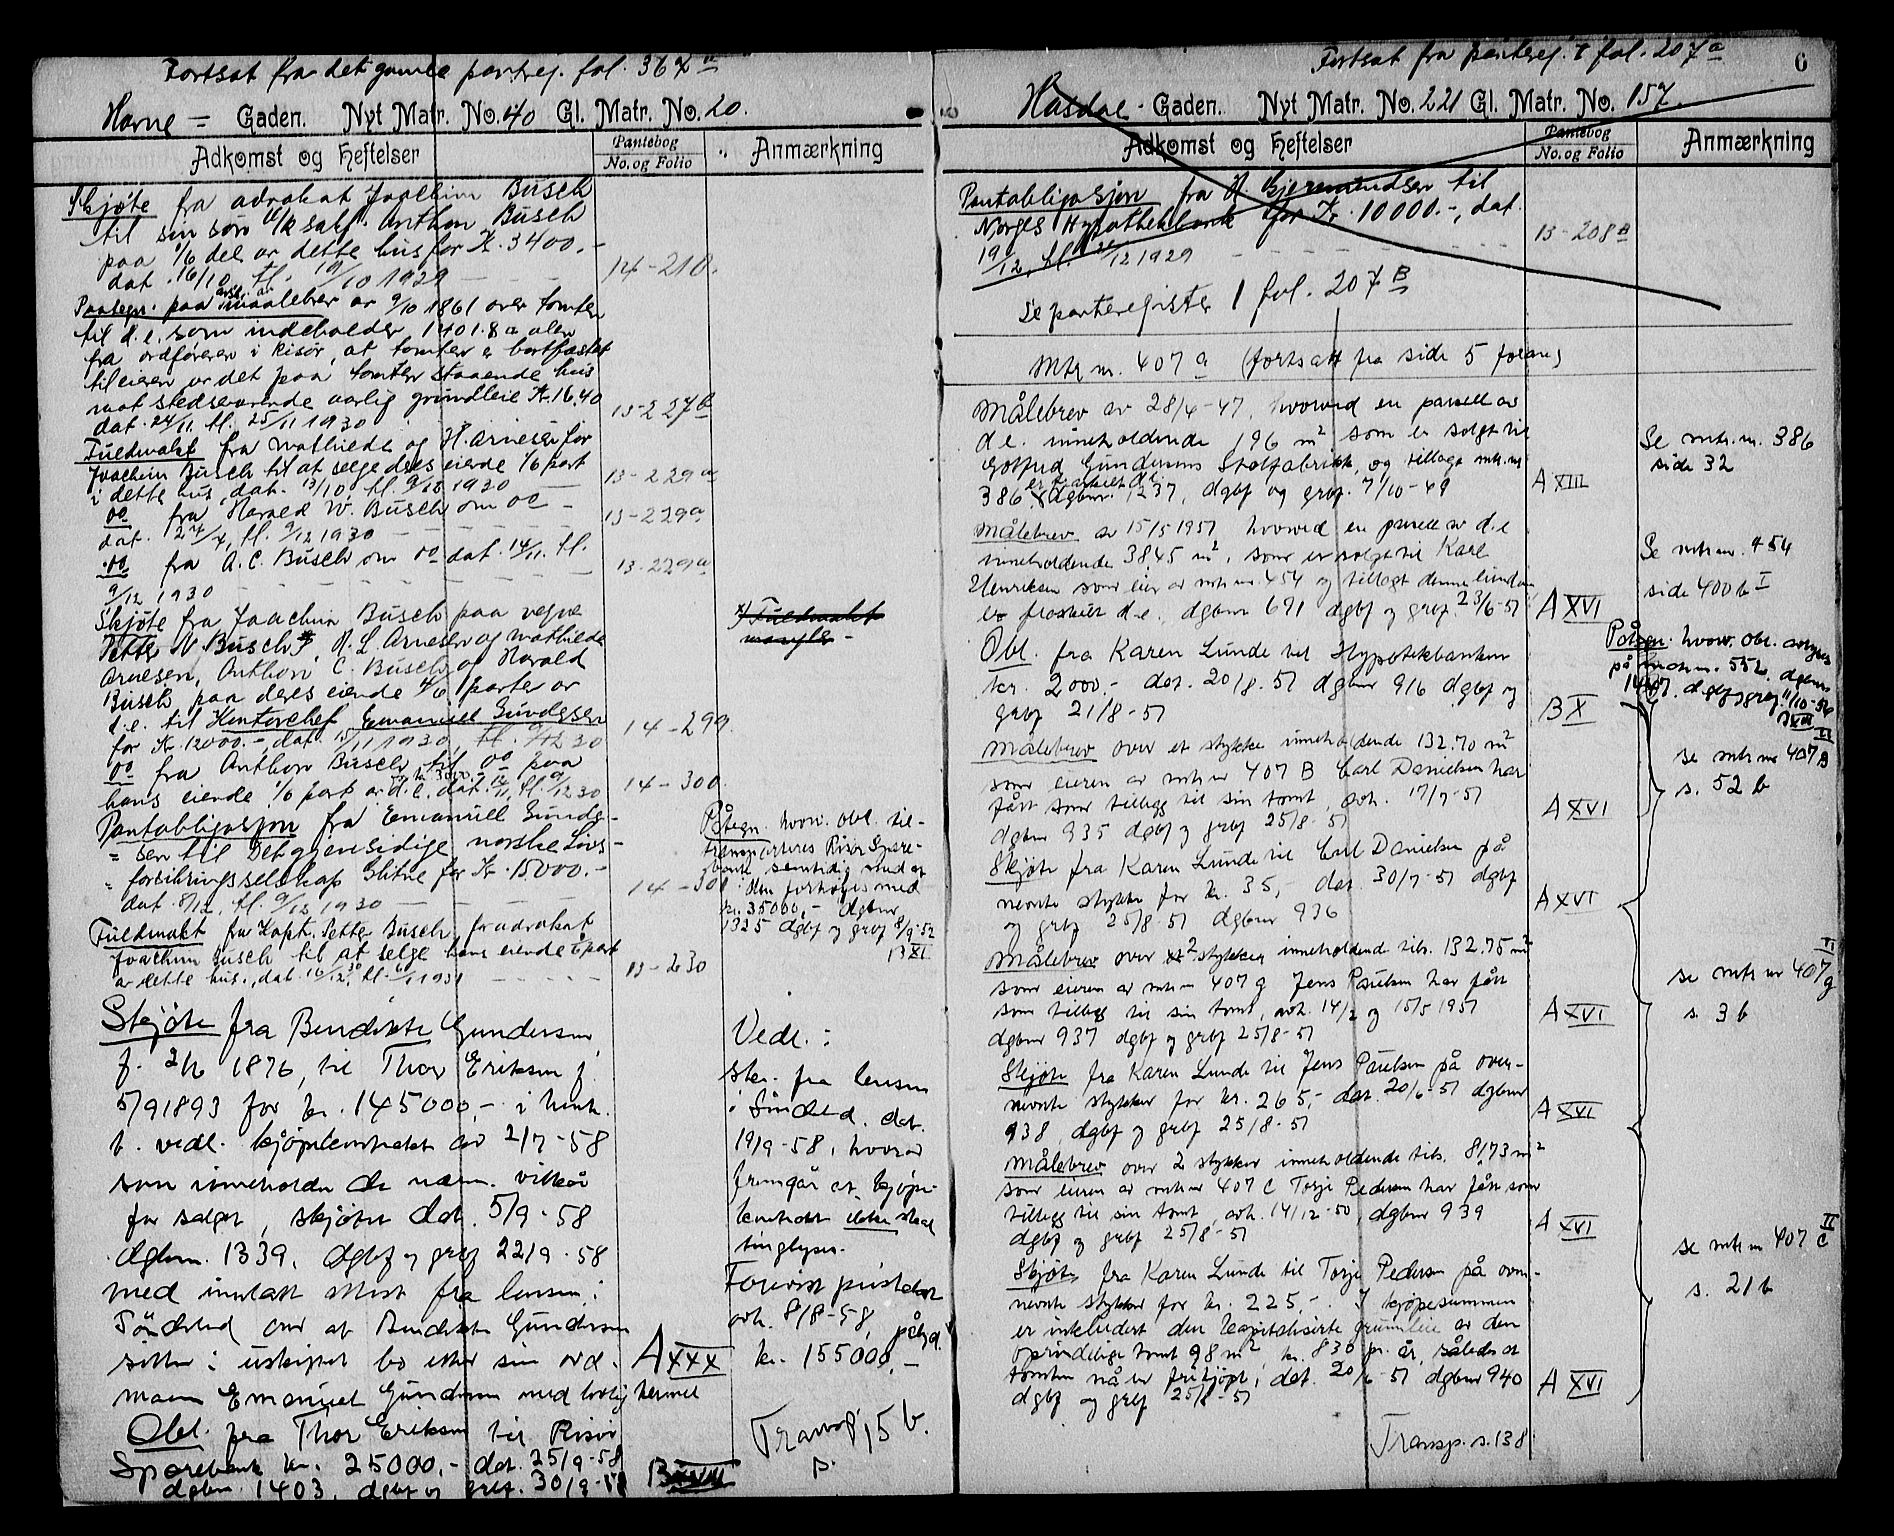 Fortsat fra det gamle pantreg. fol. 367 a
Havne = Gaden. Nyt Matr. No. 40 Gl. Matr. No. 20.
Adkomst og Heftelser
Pantebog
No. og Folio
Anmærkning
Skjøte fra advokat Joachim Busch
til sin søn Anthon Busch
paa 1/6 del av dette hus for Kr. 3400.-
dat. 16/10, tl. 19/10 1929 14-210.
Paategn. paa maalebrev av 9/10 1861 over tomten
til d.e. som indeholder 1401.8 a alen
fra ordføreren i Risør, at tomten er bortfæstet
til eieren av det paa tomten staaende hus
mot stedsevarende aarlig grundleie Kr. 16.40
dat. 24/11, tl. 25/11 1930 13-227 b
Fuldmakt fra Mathilde og H. Arnesen for
Joachim Busch til at selge deres eiende 1/6 part
i dette hus, dat. 13/10, tl. 9/12 1930 13-229 a
do fra Harald W. Busch om do -
dat. 2/12, tl. 9/12 1930 - 13-229 a
do fra A. C. Busch om do dat. 14/11. tl.
9/12 1930 - 13-229 a
Skjøte fra Joachim Busch paa vegne
Petter N. Busch, H. L. Arnesen og Mathilde
Arnesen, Anthon C. Busch og Harald
Busch paa deres eiende 4/6 parter av
d.e. til Kontorchef Emanuel Gundersen
for Kr. 12000.-, dat. 15/11 1930, tl. 9/12 30 14-299
x) Fuldmakt
mangler -
do fra Anthon Busch til do paa
hans eiende 1/6 part av d.e. dat. 15/11, tl. 9/12 30 14-300.
Pantobligasjon fra Emanuel Gunder-
= sen til Det gjensidige norske Livs-
" forsikringsselskap Glitne for Kr. 15000.-
dat. 8/12, tl. 9/12 1930 - 14-301
Påtegn. hvorv. obl. til-
transporteres Risør Spare-
bank samtidig med at
den forhøies med
kr. 35000,- dgbnr
1325 dgbf og grbf 8/9-52
B XI.
Fuldmakt fra Kapt. Petter Busch for advokat
Joachim Busch til at selge hans eiende part
av dette hus., dat. 16/12 30, tl. 6/1 1931 13-230
Skjøte fra Bendikte Gundersen
f. 2/6 1876, til Thor Eriksen f.
5/9 1893 for kr. 145000,- i henh.
t. vedl. kjøpekontrakt av 2/7-58
som inneholder de nærm. vilkår
for salget, skjøtet dat. 5/9-58
dgbnr. 1339. dgbf og grbf 22/9-58
med inntatt attest fra lensm. i
Søndeled om at Bendikte Gundersen
sitter i uskiftet bo etter sin avd.
mann Emanuel Gundersen med lovlig hjemmel
A XXX
Vedl.:
Skr. fra lensm
i Sønded. dat.
19/9-58, hvorav
fremgår at kjøpe-
kontrakt ikke skal
tinglyses.
Forevist pristakst
avh. 8/8-58, pålyd.
kr. 155000,-
Obl. fra Thor Eriksen til Risør
Sparebank kr. 25000,- dat. 25/9-58
dgbnr. 1403, dgbf og grbf. 30/9-58
Transp. 15 b.
Fortsat fra pantreg. I fol. 207 a
6
Hasdal - Gaden. Nyt Matr. No. 221 Gl. Matr. No. 157.
Adkomst og Heftelser
Pantebog
No. og Folio
Anmærkning
Pantobligasjon fra H. Gjermundsen til
Norges Hypothekbank for Kr. 10000.-, dat.
19/12, tl. 12 1929 - 13-208 B
Se panteregister 1 fol. 207 B
Mtr. nr. 407 a (fortsatt fra side 5 foran)
Målebrev av 28/4-47, hvorved en parsell av
d.e. inneholdende 196 m² som er solgt til
Gotfred Gundersens Stolfabrikk, og tillagt mtr. nr
386 er fraskilt d.e. dgbnr. 1237, dgbf og grbf. 7/10-49
A XIII
Se mtr. nr. 386
side 32
Målebrev av 15/5 1951 hvorved en parsell av d.e
inneholdende 38.45 m², som er solgt til Karl
Henriksen som eier av mtr. nr. 454 og tillagt denne eiendom
bs fraskilt d.e. dgbnr 671 dgbf og grbf 23/6-51
A XVI
Se mtr nr. 454
side 400 b I
Obl. fra Karen Lunde til Hypotekbanken
kr. 2000.- dat. 20/8-51 dgbnr 916 dgbf og
grbf 21/8-51
B X
Påtegn. hvorv. obl.
på mtr nr. 552, dgbnr
1447. dgbf og grbf 11/10-56
Målebrev over et stykke inneholdende 132.70 m²
som eieren av mtr nr 407 B Carl Danielsen har
fått som tillegg til sin tomt, avh. 17/7-51
dgbnr 935 dgbf og grbf 25/8-51
A XVI
se mtr nr 407 B II
s. 52 b
Skjøte fra Karen Lunde til Carl Danielsen på
nevnte stykke for kr. 35,- dat. 30/7-51 dgbf
og grbf 25/8-51 dgbnr 936
A XVI
Målebrev over 2 stykker inneholdende tils. 132.75 m²
som eieren av mtr nr 407 g Jens Paulsen har fått
som tillegg til sin tomt, avh. 14/2 og 15/5 1951
dgbnr 937 dgbf og grbf 25/8-51
A XVI
se mtr nr 407 g VI
s. 3 b
Skjøte fra Karen Lunde til Jens Paulsen på oven-
nevnte stykker for kr. 265,- dat. 20/6-51 dgbnr
938, dgbf og grbf 25/8-51
A XVI
Målebrev over 2 stykker inneholdende tils. 8,73 m²
som eieren av mtr nr 407 C Torje Pedersen har fått som
tillegg til sin tomt, avh. 14/12-50, dgbnr 939
dgbf og grbf 25/8-51
A XVI
se mtr nr 407 C II
s. 21 b
Skjøte fra Karen Lunde til Torje Pedersen på oven-
nevnte stykker for kr. 225,-. I kjøpesummen
er inkludert den kapitaliserte grunnleie av den
oprindelige tomt 98 m², kr. 8.30 pr. år, således at
tomten nå er frikjøpt, dat. 20/6-51 dgbnr 940
dgbf og grbf 25/8-51
A XVI
Transp. s. 138